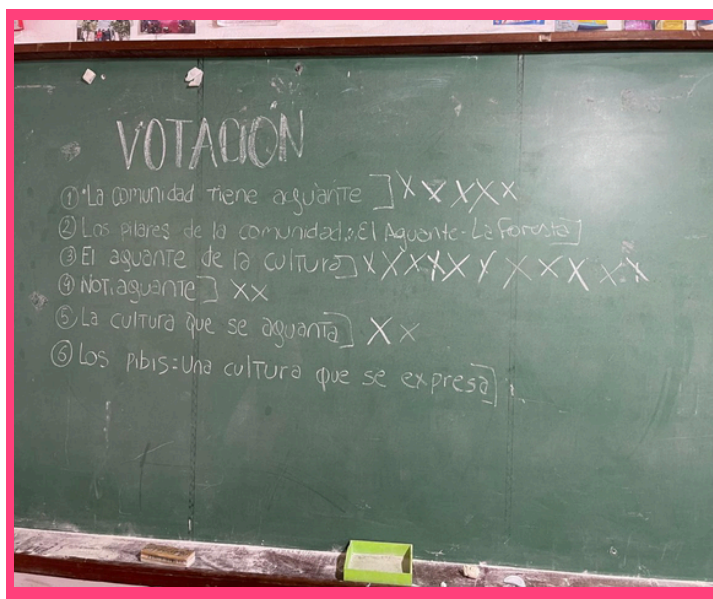 VOTACIÓN
① "La comunidad tiene aguante] X X X X X
② Los pilares de la comunidad: El Aguante - La Foresta]
③ El aguante de la cultura] X X X X X X X X X X X
④ NOT.aguante] X X
⑤ La cultura que se aguanta] X X
⑥ Los pibis: Una cultura que se expresa]